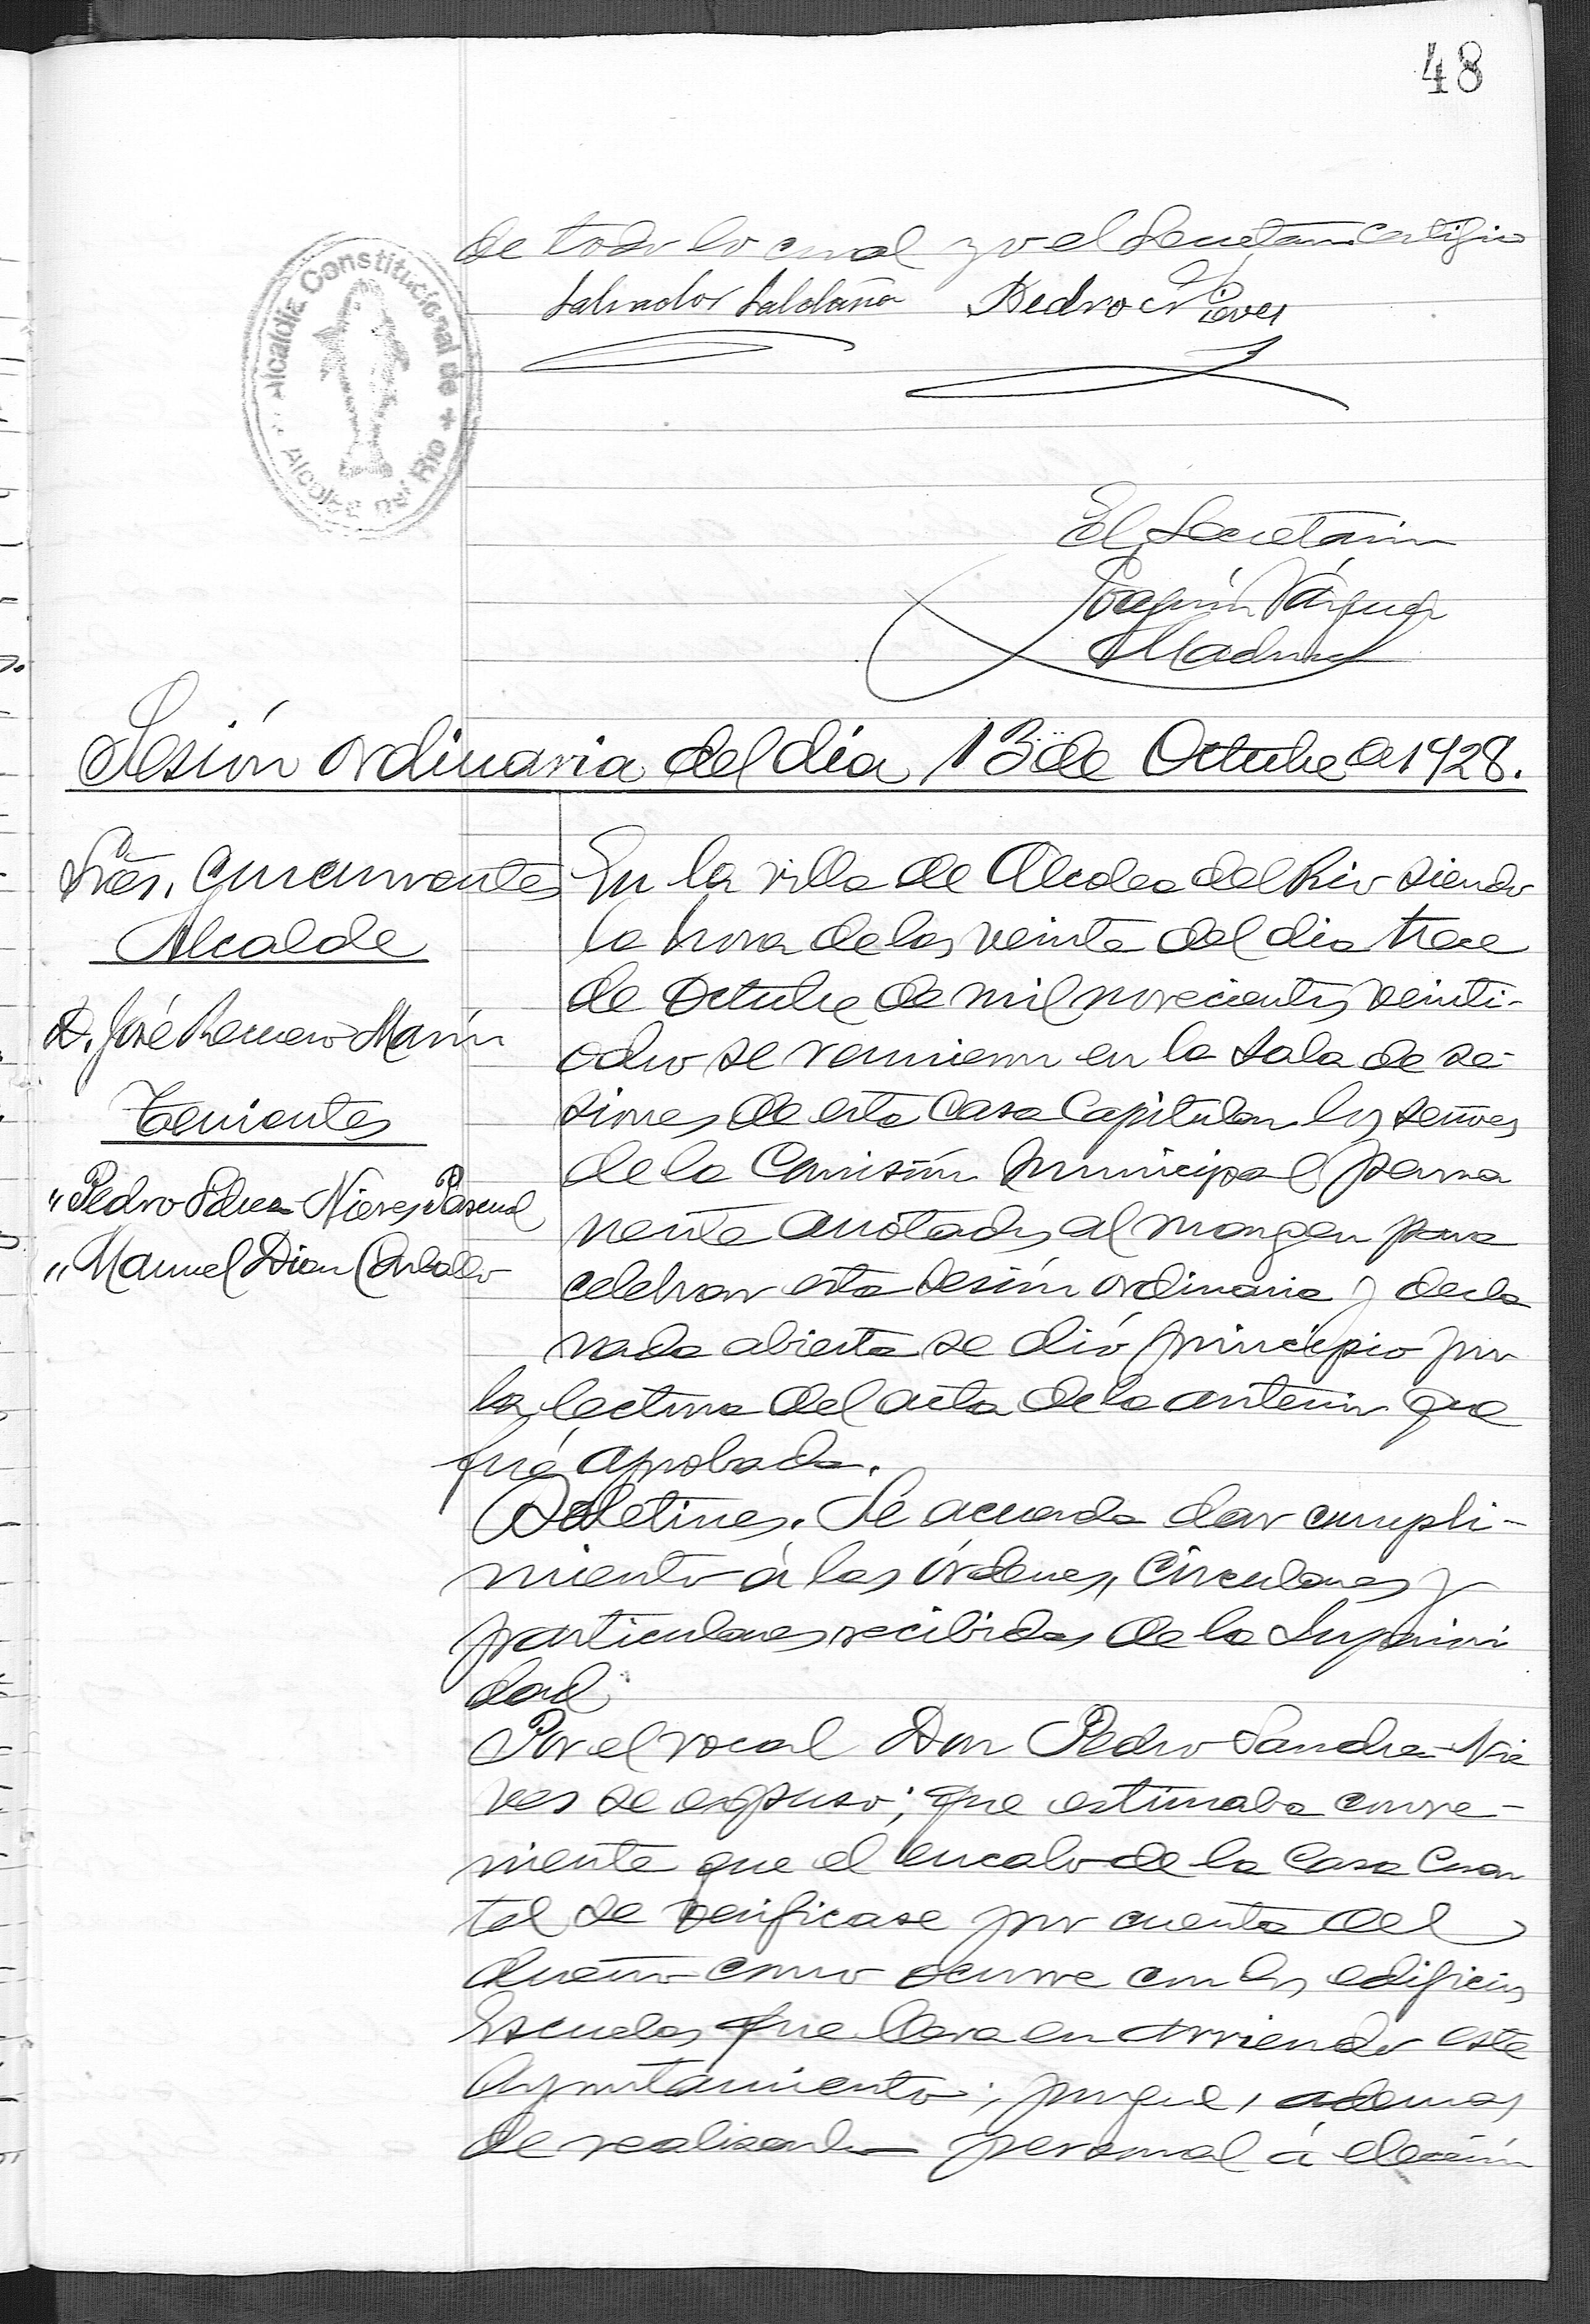 48
de todo lo cual yo el Secretario certifico
Salvador Saldaña Pedro Nieves
Alcaldía Constitucional de + Alcolea del Río
El Secretario
Joaquín Vázquez
Madru
Sesión ordinaria del día 13 de Octubre de 1928.
Srēs. Concurrentes
Alcalde
D. José Romero Marín
Tenientes
" Pedro Schez Nieves Pascual
" Manuel Dian Carballo
En la villa de Alcolea del Rio siendo
la hora de las veinte del dia trece
de Octubre de mil novecientos veinti-
ocho se reunieron en la Sala de se-
siones de esta Casa Capitular los señores
de la Comisión municipal perma
nente anotados al margen para
celebrar esta sesión ordinaria y decla
rada abierta se dió principio por
la lectura del acta de la anterior que
fué aprobada.
Boletines. Se acuerda dar cumpli-
miento á las órdenes, Circulares y
particulares recibidas de la Superiori
dad.
Por el vocal Don Pedro Sanchez Nie
ves se expuso; que estimaba conve-
niente que el encalo de la Casa Cuar
tel se verificase por cuenta del
dueño como ocurre con los edificios
Escuelas que lleva en arriendo este
Ayuntamiento; porque, ademas
de realizarlo personal á elección